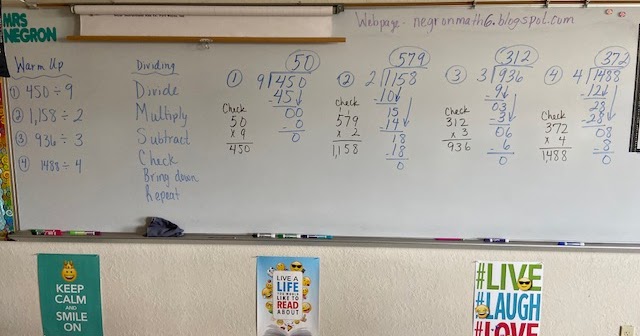 MRS
NEGRON
Webpage - negronmath6.blogspot.com
Warm Up
① 450 ÷ 9
② 1,158 ÷ 2
③ 936 ÷ 3
④ 1488 ÷ 4
Dividing
Divide
Multiply
Subtract
Check
Bring down
Repeat
①
50
9 450
-45↓
00
- 0
0
Check
50
x 9
450
②
579
2 1158
-10↓
15
-14↓
18
-18
0
Check
579
x 2
1,158
③
312
3 936
-9↓
03
-3↓
06
- 6
0
Check
312
x 3
936
④
372
4 1488
-12↓
28
-28↓
08
-8
0
Check
372
x 4
1,488
KEEP
CALM
AND
SMILE
ON
LIVE A
LIFE
YOU WOULD
LIKE TO
READ
ABOUT
#LIVE
#LAUGH
#LOVE